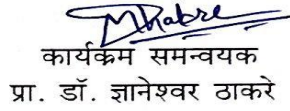 कार्यक्रम समन्वयक
प्रा. डॉ. ज्ञानेश्वर ठाकरे